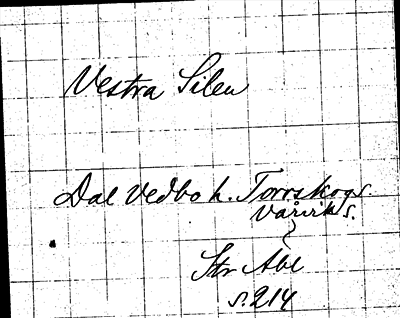 Vestra Silen
Dal Vedbo h. Torrskogs s.
Vårviks s.
Str Abl
s. 214